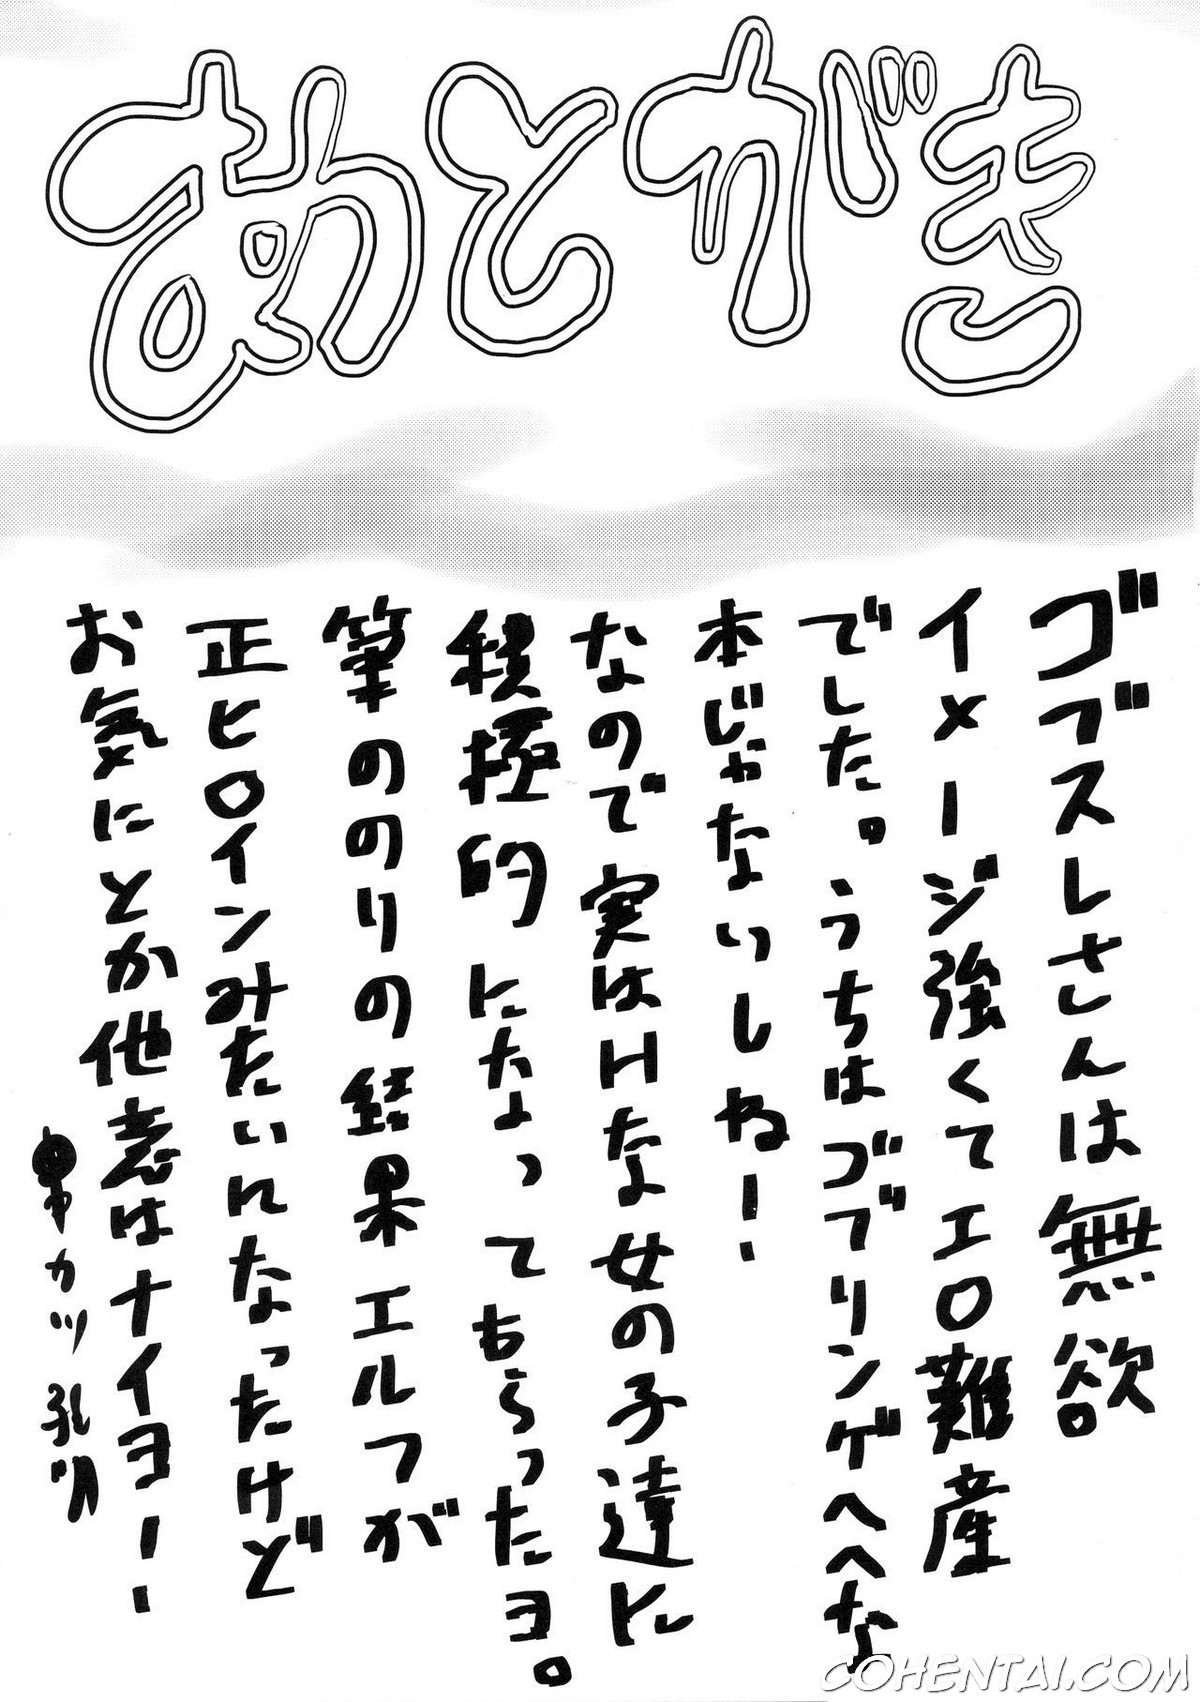 あとがき
ゴブスレさんは無欲
イメージ強くてエロ難産
でした。うちはゴブリンゲヘヘな
本じゃないしね!
なので実はHな女の子達に
積極的になってもらったヨ。
筆ののりの結果エルフが
正ヒロインみたいになったけど
お気にとか他意はナイヨー!
COHENTAI.COM